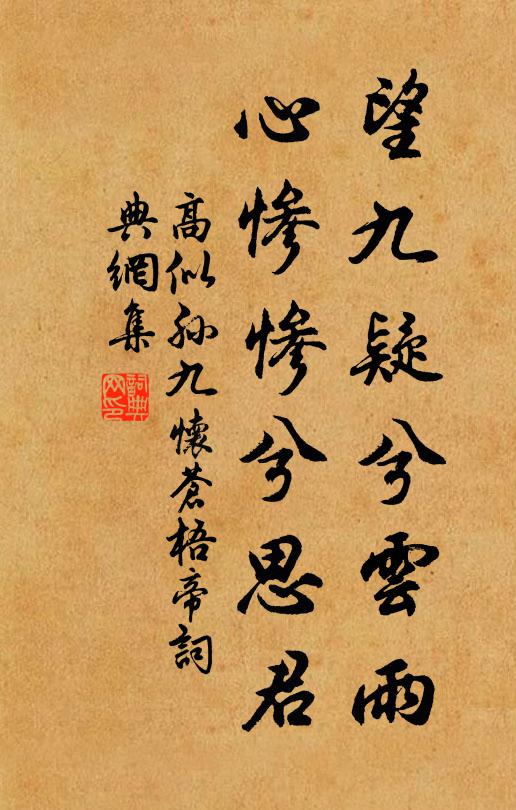 望九疑兮雲雨
心慘慘兮思君
高似孫九懷蒼梧帝詞
典網集
詞典網印